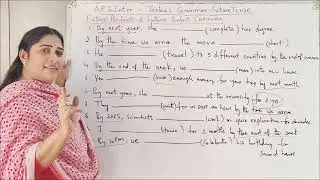 AP Sr. Inter - Textual Grammar Future Tense
Future Perfect & Future Perfect Continuous
1. By next year, she ____ (complete) her degree
2. By the time we arrive, the movie ____ (start).
3. He ____ (travel) to 5 different countries by the end of summer
4. By the end of the week, we ____ (move) into new house
5. You ____ (save) enough money for your trip by next month
By next year, she ____ at the university for 2 yrs.
7. They ____ (wait) for us over an hour by the time we arrive
8. By 2025, scientists ____ (work) on space exploration for decades
9. I ____ (train) for 2 months by the end of the week
10. By 10PM, we ____ (celebrate) his birthday for
several hours